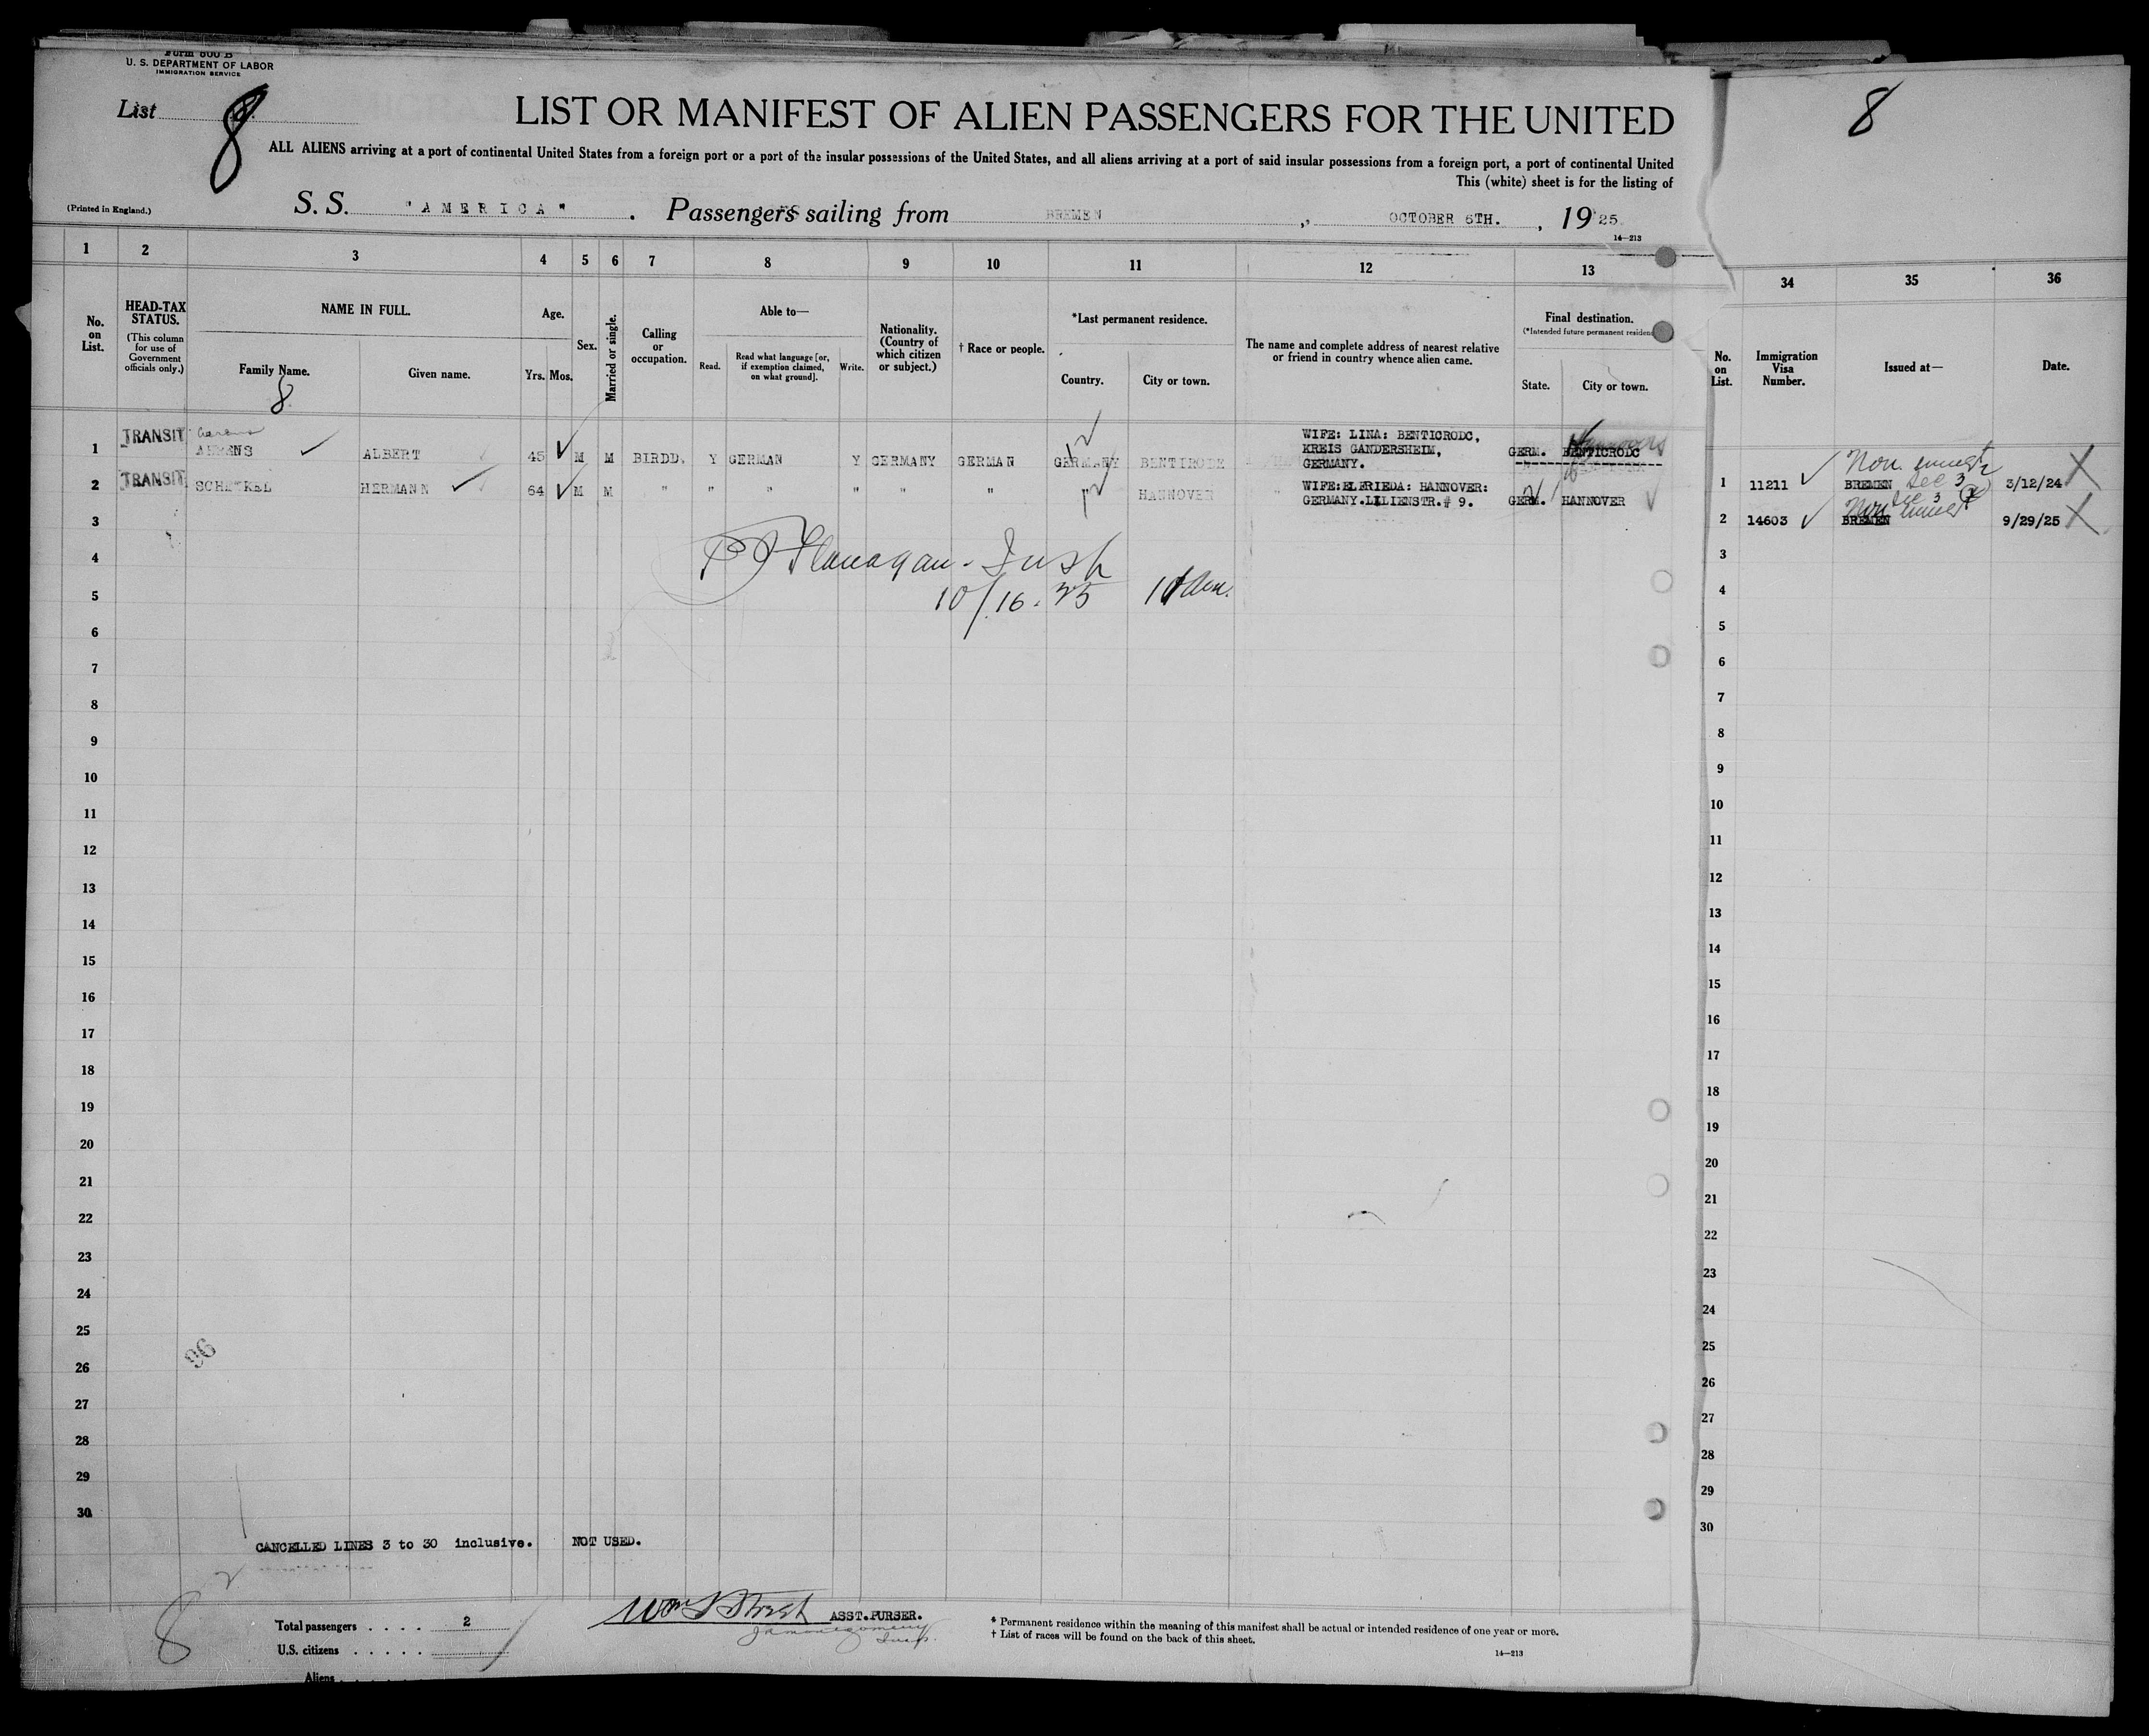 Form 600 B
U. S. DEPARTMENT OF LABOR
IMMIGRATION SERVICE
List 8
8
LIST OR MANIFEST OF ALIEN PASSENGERS FOR THE UNITED
ALL ALIENS arriving at a port of continental United States from a foreign port or a port of the insular possessions of the United States, and all aliens arriving at a port of said insular possessions from a foreign port, a port of continental United
This (white) sheet is for the listing of
(Printed in England.)
S. S. "AMERICA" . Passengers sailing from BREMEN , OCTOBER 6TH. , 1925
14—213
1 2 3 4 5 6 7 8 9 10 11 12 13 34 35 36
No. on List.
HEAD-TAX STATUS.
(This column for use of Government officials only.)
NAME IN FULL.
Family Name.
8
Given name.
Age.
Yrs. Mos.
Sex.
Married or single.
Calling or occupation.
Able to—
Read.
Read what language [or, if exemption claimed, on what ground].
Write.
Nationality. (Country of which citizen or subject.)
† Race or people.
*Last permanent residence.
Country.
City or town.
The name and complete address of nearest relative or friend in country whence alien came.
Final destination.
(*Intended future permanent residen
State.
City or town.
No. on List.
Immigration Visa Number.
Issued at—
Date.
1 TRANSIT AHRENS ALBERT 45 M M BIRDD. Y GERMAN Y GERMANY GERMAN GERMANY BENTIRODE WIFE: LINA: BENTICRODC,
KREIS GANDERSHEIM,
GERMANY.
GERM. BENTICRODC
1 11211 BREMEN Sec 3 3/12/24
2 TRANSIT HERMANN 64 M M " " " " " " " HANNOVER WIFE:ELFRIEDA: HANNOVER:
GERMANY.LILIENSTR.# 9.
GERM. HANNOVER
2 14603 BREMEN Sec 3 9/29/25
P J Flanagan - Insp
10/16.25
3
4
5
6
7
8
9
10
11
12
13
14
15
16
17
18
19
20
21
22
23
24
25
26
27
28
29
30
3
4
5
6
7
8
9
10
11
12
13
14
15
16
17
18
19
20
21
22
23
24
25
26
27
28
29
30
96
CANCELLED LINES 3 to 30 inclusive. NOT USED.
8
Total passengers . . . . 2
U.S. citizens . . . . .
Aliens
Wm S Street ASST.PURSER.
* Permanent residence within the meaning of this manifest shall be actual or intended residence of one year or more.
† List of races will be found on the back of this sheet.
14—213